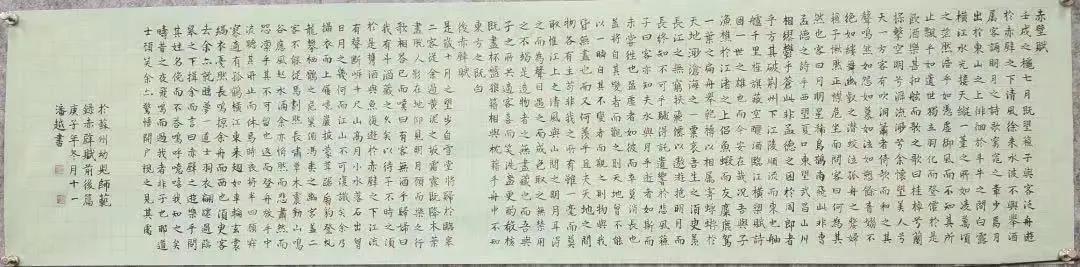 赤壁賦
壬戌之秋七月既望蘇子與客泛舟遊
於赤壁之下清風徐來水波不興舉酒
屬客誦明月之詩歌窈窕之章少焉月
出於東山之上徘徊於斗牛之間白露
橫江水光接天縱一葦之所如凌萬頃
之茫然浩浩乎如馮虛御風而不知其所
止飄飄乎如遺世獨立羽化而登僊於是
飲酒樂甚扣舷而歌之歌曰桂棹兮蘭
槳擊空明兮泝流光渺渺兮余懷望美人兮
天一方客有吹洞簫者倚歌而和之其
聲嗚嗚然如怨如慕如泣如訴餘音嫋嫋不
絕如縷舞幽壑之潛蛟泣孤舟之嫠婦
蘇子愀然正襟危坐而問客曰何為其
然也客曰月明星稀烏鵲南飛此非曹
孟德之詩乎西望夏口東望武昌山川
相繆鬱乎蒼蒼此非孟德之困於周郎者
乎方其破荊州下江陵順流而東也舳
艫千里旌旗蔽空釃酒臨江橫槊賦詩
固一世之雄也而今安在哉況吾與子
漁樵於江渚之上侶魚蝦而友麋鹿駕
一葉之扁舟舉匏樽以相屬寄蜉蝣於
天地渺滄海之一粟哀吾生之須臾羨
長江之無窮挾飛僊以遨遊抱明月而
長終知不可乎驟得託遺響於悲風蘇
子曰客亦知夫水與月乎逝者如斯而
未嘗往也盈虛者如彼而卒莫消長也
蓋將自其變者而觀之則天地曾不能
以一瞬自其不變者而觀之則物與我
皆無盡也而又何羨乎且夫天地之間
物各有主苟非我之所有雖一毫而莫
取惟江上之清風與山間之明月耳得
之而為聲目遇之而成色取之無禁用
之不竭是造物者之無盡藏也而吾與
子之所共適客喜而笑洗盞更酌肴核
既盡杯盤狼籍相與枕藉乎舟中不知
東方之既白
後赤壁賦
是歲十月之望步自雪堂將歸於臨皋
二客從余過黃泥之坂霜露既降木葉
盡脫人影在地仰見明月顧而樂之行
歌相答已而嘆曰有客無酒
我有斗酒藏之久矣以待子不時之須
於是攜酒與魚復遊於赤壁之下江流
有聲斷岸千尺山高月小水落石出曾
日月之幾何而江山不可復識矣余乃
攝衣而上履巉巖披蒙茸踞虎豹登虬
龍攀栖鶻之危巢俯馮夷之幽宮蓋二
客不能從焉劃然長嘯草木震動山鳴
谷應風起水涌余亦悄然而悲肅然而
恐凜乎其不可留也返而登舟放乎中
流聽其所止而休焉時夜將半四顧寂
寥適有孤鶴橫江東來翅如車輪玄裳
縞衣戛然長鳴掠余舟而西也須臾客
去余亦就睡夢一道士羽衣翩躚過臨
皋之下揖余而言曰赤壁之遊樂乎問
其姓名俛而不答嗚呼噫嘻我知之矣
疇昔之夜飛鳴而過我者非子也耶道
士顧笑余亦驚悟開戶視之不見其處
於蘇州幼兒師範
錄赤壁賦前後篇
庚子年冬月十一
潘越書